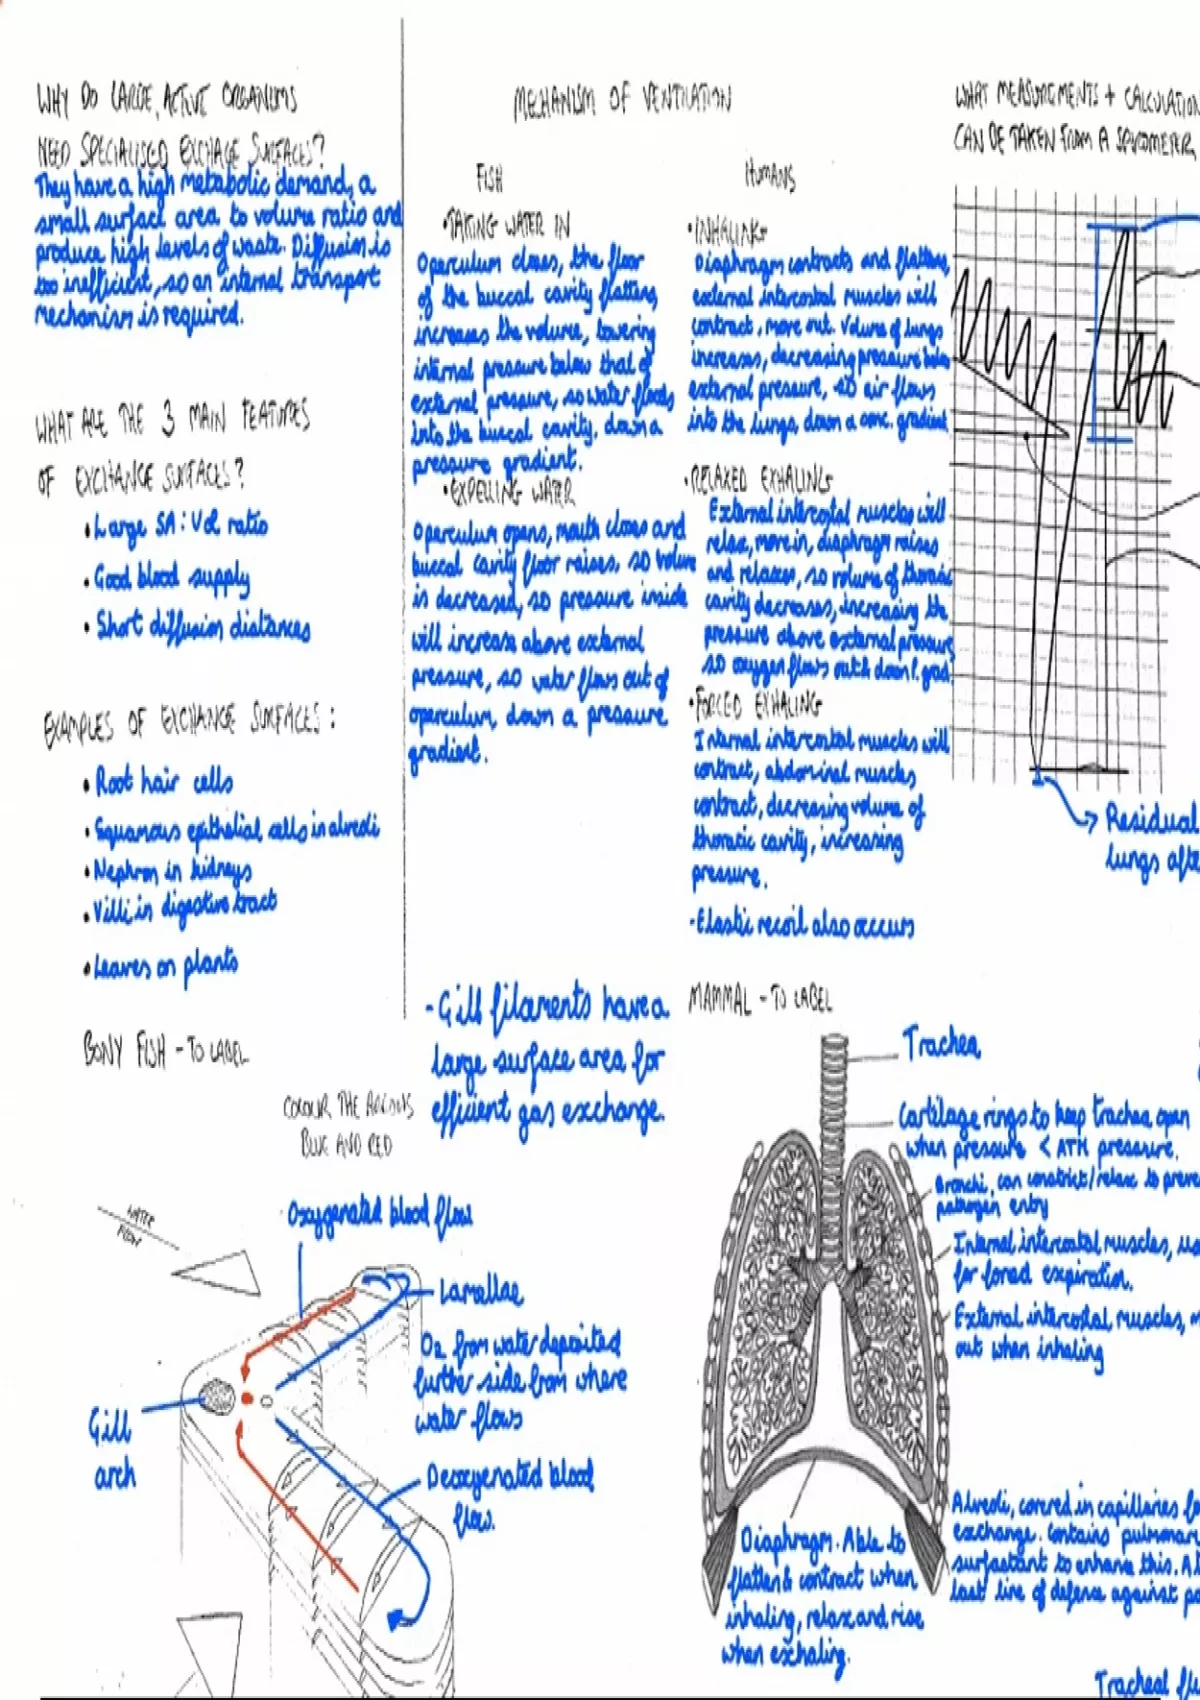 WHY DO LARGE, ACTIVE ORGANISMS
NEED SPECIALISED EXCHAGE SURFACES?
They have a high metabolic demand, a
small surface area to volume ratio and
produce high levels of waste. Diffusion is
too inefficient, so an internal transport
mechanism is required.
WHAT ARE THE 3 MAIN FEATURES
OF EXCHANGE SURFACES?
• Large SA: Vol ratio
• Good blood supply
• Short diffusion distances
EXAMPLES OF EXCHANGE SURFACES:
• Root hair cells
• Squamous epithelial cells in alveoli
• Nephron in kidneys
• Villi in digestive tract
• Leaves on plants
MECHANISM OF VENTILATION
FISH
• TAKING WATER IN
Operculum closes, the floor
of the buccal cavity flattens,
increases the volume, lowering
internal pressure below that of
external pressure, so water floods
into the buccal cavity, down a
pressure gradient.
• EXPELLING WATER
Operculum opens, mouth closes and
buccal cavity floor raises, so volume
is decreased, so pressure inside
will increase above external
pressure, so water flows out of
operculum, down a pressure
gradient.
HUMANS
• INHALING
Diaphragm contracts and flattens,
external intercostal muscles will
contract, move out. Volume of lungs
increases, decreasing pressure below
external pressure, so air flows
into the lungs, down a conc. gradient
• RELAXED EXHALING
External intercostal muscles will
relax, move in, diaphragm raises
and relaxes, so volume of thoracic
cavity decreases, increasing the
pressure above external pressure
so oxygen flows out down grad.
• FORCED EXHALING
Internal intercostal muscles will
contract, abdominal muscles
contract, decreasing volume of
thoracic cavity, increasing
pressure.
- Elastic recoil also occurs
WHAT MEASUREMENTS + CALCULATION
CAN BE TAKEN FROM A SPIROMETER
Residual
lungs afte
BONY FISH - TO LABEL
COLOUR THE ARROWS
BLUE AND RED
- Gill filaments have a
large surface area for
efficient gas exchange.
WATER
FLOW
Oxygenated blood flow
Lamellae
O2 from water deposited
further side from where
water flows
Gill
arch
Deoxygenated blood
flow.
MAMMAL - TO LABEL
Trachea
Cartilage rings to keep trachea open
when pressure < ATM pressure.
Bronchi, can constrict/relax to preve
pathogen entry
Internal intercostal muscles, us
for forced expiration.
External intercostal muscles, m
out when inhaling
Alveoli, covered in capillaries fo
exchange. Contains pulmonar
surfactant to enhance this. Al
last line of defense against pa
Diaphragm. Able to
flatten & contract when
inhaling, relax and rise
when exhaling.
Tracheal flu